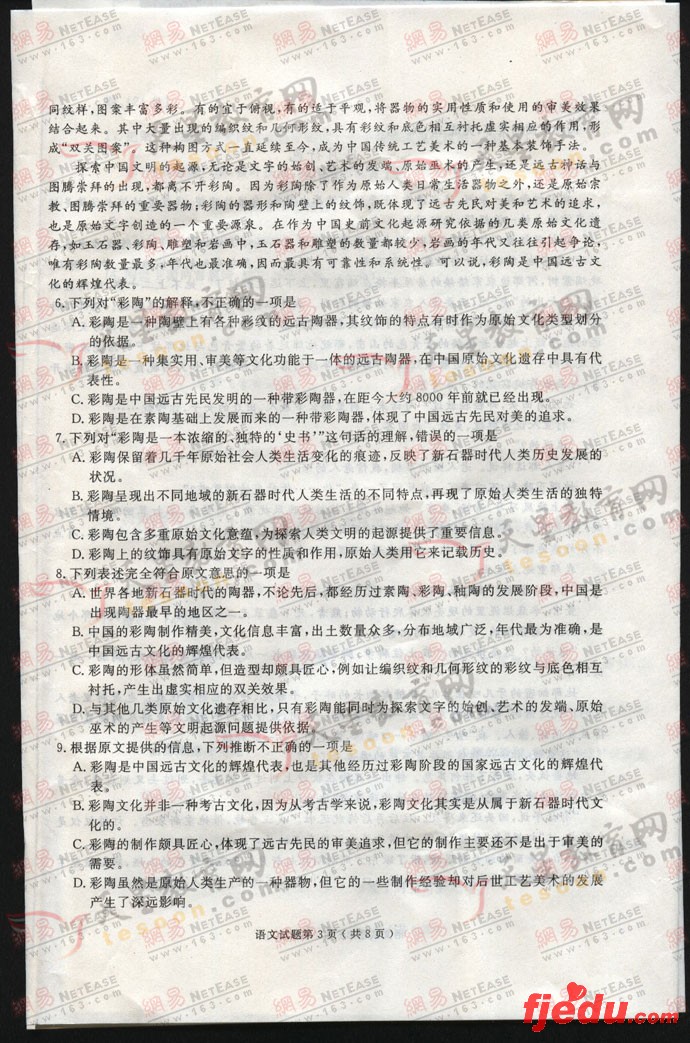 同纹样,图案丰富多彩。有的宜于俯视,有的适于平观,将器物的实用性质和使用的审美效果
结合起来。其中大量出现的编织纹和几何形纹,具有彩纹和底色相互衬托虚实相应的作用,形
成“双关图案”。这种构图方式一直延续至今,成为中国传统工艺美术的一种基本装饰手法。
探索中国文明的起源,无论是文字的始创、艺术的发端、原始巫术的产生,还是远古神话与
图腾崇拜的出现,都离不开彩陶。因为彩陶除了作为原始人类日常生活器物之外,还是原始宗
教、图腾崇拜的重要器物;彩陶的器形和陶壁上的纹饰,既体现了远古先民对美和艺术的追求,
也是原始文字创造的一个重要源泉。在作为中国史前文化起源研究依据的几类原始文化遗
存,如玉石器、彩陶、雕塑和岩画中,玉石器和雕塑的数量都较少,岩画的年代又往往引起争论,
唯有彩陶数量最多,年代也最准确,因而最具有可靠性和系统性。可以说,彩陶是中国远古文
化的辉煌代表。
6.下列对“彩陶”的解释,不正确的一项是
A.彩陶是一种陶壁上有各种彩纹的远古陶器,其纹饰的特点有时作为原始文化类型划分
的依据。
B.彩陶是一种集实用、审美等文化功能于一体的远古陶器,在中国原始文化遗存中具有代
表性。
C.彩陶是中国远古先民发明的一种带彩陶器,在距今大约8000年前就已经出现。
D.彩陶是在素陶基础上发展而来的一种带彩陶器,体现了中国远古先民对美的追求。
7.下列对“彩陶是一本浓缩的、独特的‘史书’”这句话的理解,错误的一项是
A.彩陶保留着几千年原始社会人类生活变化的痕迹,反映了新石器时代人类历史发展的
状况。
B.彩陶呈现出不同地域的新石器时代人类生活的不同特点,再现了原始人类生活的独特
情境。
C.彩陶包含多重原始文化意蕴,为探索人类文明的起源提供了重要信息。
D.彩陶上的纹饰具有原始文字的性质和作用,原始人类用它来记载历史。
8.下列表述完全符合原文意思的一项是
A.世界各地新石器时代的陶器,不论先后,都经历过素陶、彩陶、釉陶的发展阶段,中国是
出现陶器最早的地区之一。
B.中国的彩陶制作精美,文化信息丰富,出土数量众多,分布地域广泛,年代最为准确,是
中国远古文化的辉煌代表。
C.彩陶的形体虽然简单,但造型却颇具匠心,例如让编织纹和几何形纹的彩纹与底色相互
衬托,产生出虚实相应的双关效果。
D.与其他几类原始文化遗存相比,只有彩陶能同时为探索文字的始创、艺术的发端、原始
巫术的产生等文明起源问题提供依据。
9.根据原文提供的信息,下列推断不正确的一项是
A.彩陶是中国远古文化的辉煌代表,也是其他经历过彩陶阶段的国家远古文化的辉煌代
表。
B.彩陶文化并非一种考古文化,因为从考古学来说,彩陶文化其实是从属于新石器时代文
化的。
C.彩陶的制作颇具匠心,体现了远古先民的审美追求,但它的制作主要还不是出于审美的
需要。
D.彩陶虽然是原始人类生产的一种器物,但它的一些制作经验却对后世工艺美术的发展
产生了深远影响。
语文试题第3页(共8页)
fjedu.com